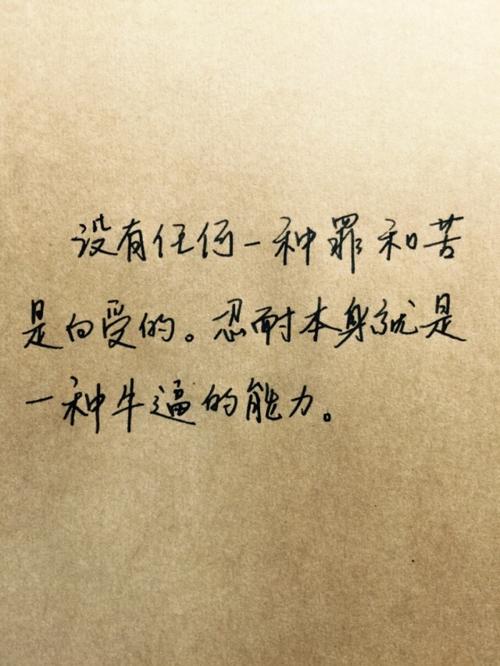 没有任何一种罪和苦
是白受的。忍耐本身就是
一种牛逼的能力。